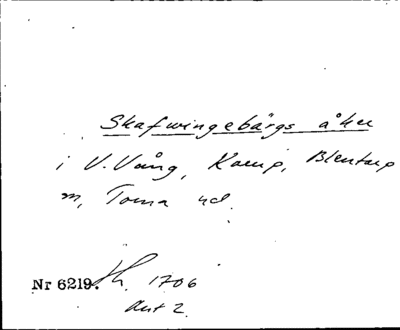 Skafwingebärgs åker
i V. Vång, Kamp, Blentarp
sn, Torna hd.
Nr 6219. Lh. 1706
Akt 2.